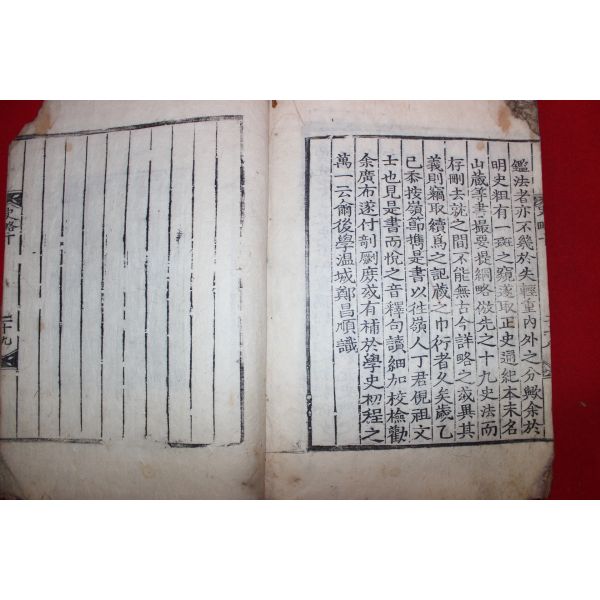 鑑法者亦不幾於失輕重內外之分歟余於
明史粗有一斑之窺遂取正史通紀本末名
山藏等書撮要提綱略倣先之十九史法而
存刪去就之間不能無古今詳略之或異其
義則竊取續焉之記藏之巾行者久矣歲乙
已忝按嶺節携是書以往嶺人丁君俔祖文
士也見是書而悅之音釋句讀細加校檢勸
余廣布遂付剞劂庶或有補於學史初程之
萬一云爾後學溫城鄭昌順識
史略十
二十九